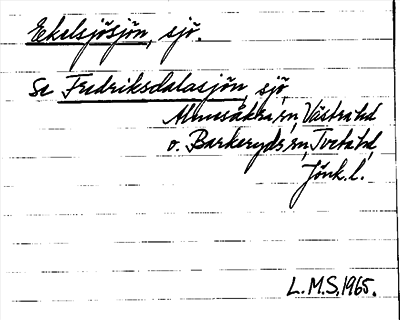 Ekelsjösjön, sjö.
Se Fredriksdalasjön, sjö,
Almesåkra sn, Västra hd
o. Barkeryds sn, Tveta hd,
Jönk. l.
L.M.S. 1965.